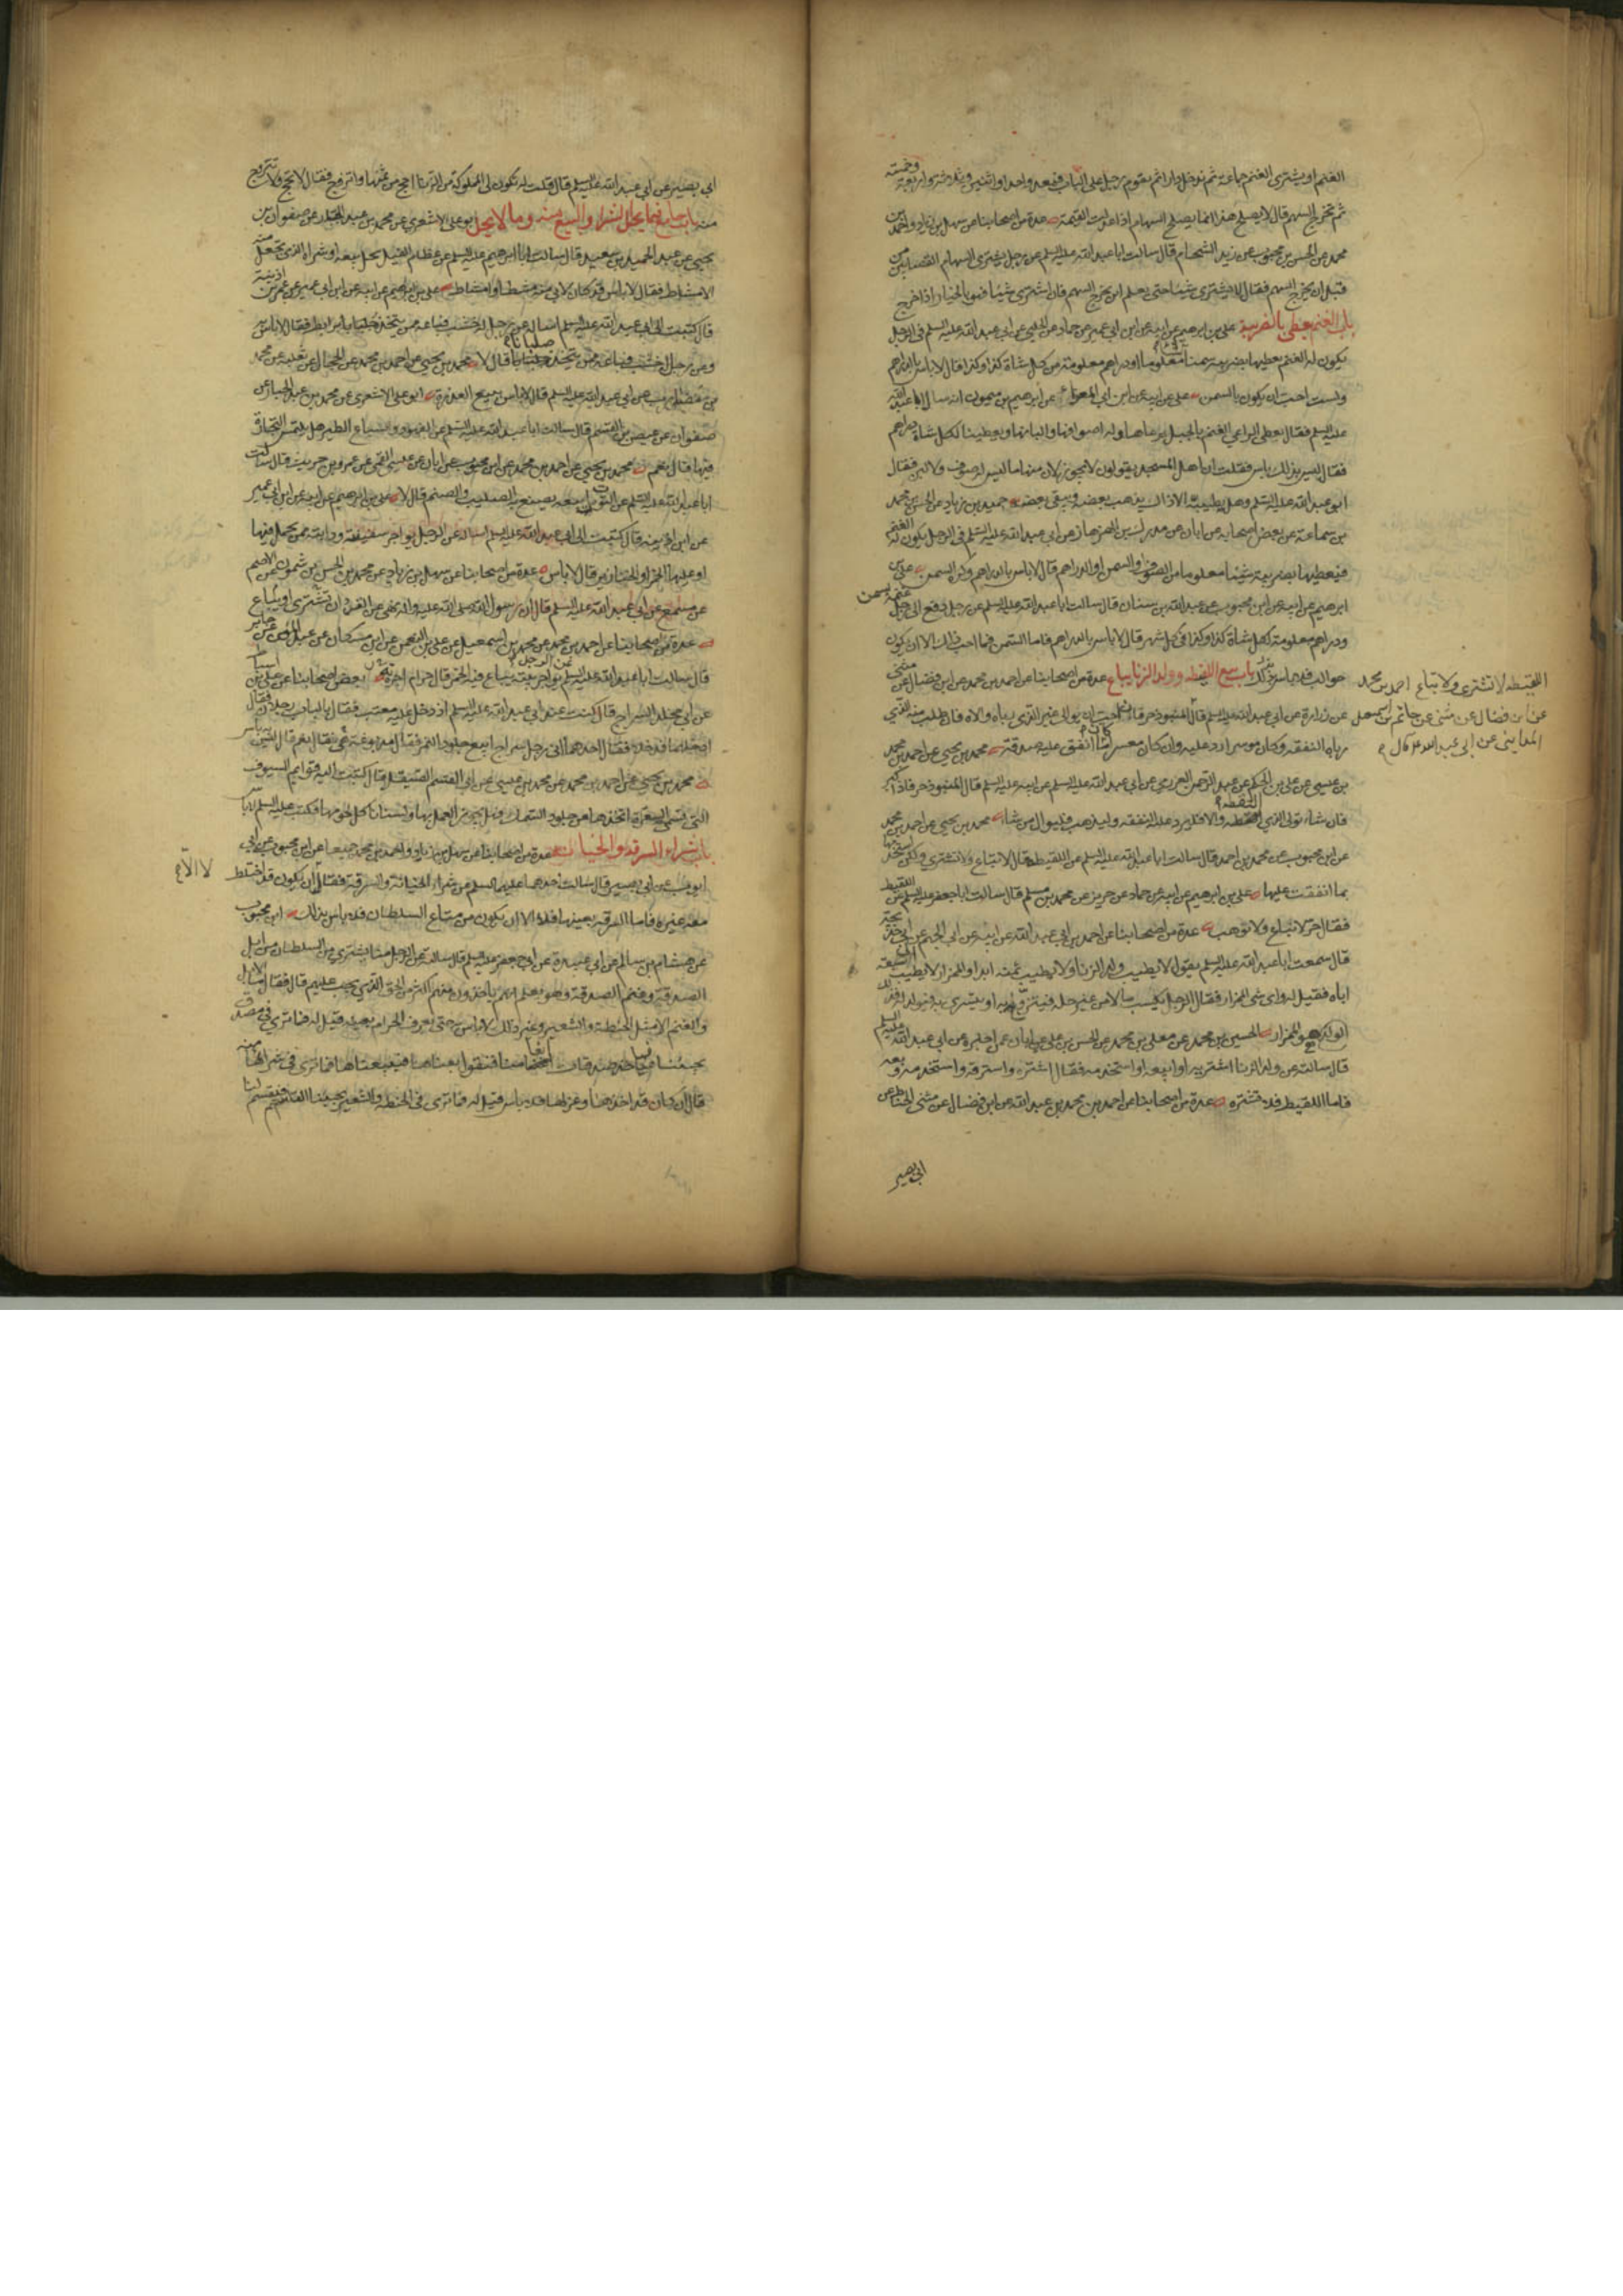 الغنم او يشترى الغنم جماعة ثم تدخل دارا ثم يقوم رجل على الباب فيعد واحدا واثنين وثلثة واربعة وخمسة
ثم يخرج السهم قال لا يصلح هذا انما يصلح السهام اذا عدلت القيمة عدة من اصحابنا عن سهل بن زياد واحمد بن
محمد عن الحسن بن محبوب عن زيد الشحام قال سالت ابا عبد الله عليه السلم عن رجل يشترى السهام القصابين من
قبل ان يخرج السهم فقال لا يشترى شيئا حتى يعلم اين يخرج السهم فان اشترى شيئا فهو بالخيار اذا خرج
باب الغنم يعطى بالضريبة على بن ابرهيم عن ابيه عن ابن ابى عمير عن حماد عن الحلبى عن ابى عبد الله عليه السلم فى الرجل
يكون له الغنم يعطيها بضريبة سمنا معلوما او دراهم معلومة من كل شاة كذا وكذا قال لا باس بالدراهم
ولست احب ان يكون بالسمن على عن ابيه عن ابن ابى المعزا عن ابرهيم بن ميمون انه سال ابا عبد الله
عليه السلم فقال يعطى الراعى الغنم بالجبل يرعاها وله اصوافها والبانها ويعطينا لكل شاة دراهم
فقال ليس بذلك باس فقلت ان اهل المسجد يقولون لا يجوز لان منها ما ليس له صوف ولا لبن فقال
ابو عبد الله عليه السلم وهل يطيبه الا ذاك يذهب بعضه ويبقى بعض حميد بن زياد عن الحسن بن محمد
بن سماعة عن بعض اصحابه عن ابان عن مدرك بن الهزهاز عن ابى عبد الله عليه السلم فى الرجل يكون له الغنم
فيعطيها بضريبة شيئا معلوما من الصوف والسمن او الدراهم قال لا باس بالدراهم وكره السمن على بن
ابرهيم عن ابيه عن ابن محبوب عن عبد الله بن سنان قال سالت ابا عبد الله عليه السلم عن رجل دفع الى رجل غنمه بسمن
ودراهم معلومة لكل شاة كذا وكذا فى كل شهر قال لا باس بالدراهم فاما السمن فما احب ذلك الا ان يكون
حوالب فلا باس بذلك باب بيع اللقيط وولد الزنا يباع عدة من اصحابنا عن احمد بن محمد عن ابن فضال عن مثنى
عن زرارة عن ابى عبد الله عليه السلم قال المنبوذ حر فان احب ان يوالى غير الذى رباه والاه فان طلب منه الذى
رباه النفقة وكان موسرا رد عليه وان كان معسرا كان ما انفق عليه صدقة محمد بن يحيى عن احمد بن محمد
بن عيسى عن على بن الحكم عن عبد الرحمن العزرمى عن ابى عبد الله عليه السلم عن ابيه عليه السلم قال المنبوذ حر فاذا كبر
فان شاء تولى الذى التقطه والا فليرد عليه النفقة وليذهب فليوال من شاء محمد بن يحيى عن احمد بن محمد
عن ابن محبوب عن محمد بن احمد قال سالت ابا عبد الله عليه السلم عن اللقيطة قال لا تباع ولا تشترى ولكن تستخدمها
بما انفقت عليها على بن ابرهيم عن ابيه عن حماد عن حريز عن محمد بن مسلم قال سالت ابا جعفر عليه السلم عن اللقيط
فقال حر لا يباع ولا يوهب عدة من اصحابنا عن احمد بن ابى عبد الله عن ابيه عن ابى الجهم عن ابى خديجة
قال سمعت ابا عبد الله عليه السلم يقول لا يطيب ولد الزنا ولا يطيب ثمنه ابدا والممزار لا يطيب الى سبعة
اباء فقيل له واى شى الممزار فقال الرجل يكسب مالا من غير حله فيتزوج به او يتسرى به فيولد له فذلك
الولد هو الممزار الحسين بن محمد عن معلى بن محمد عن الحسن بن على عن ابان عمن اخبره عن ابى عبد الله عليه السلم
قال سالته عن ولد الزنا اشتريه او ابيعه او استخدمه فقال اشتره واسترقه واستخدمه وبعه
فاما اللقيط فلا تشتره عدة من اصحابنا عن احمد بن محمد بن عبد الله عن ابن فضال عن مثنى الحناط عن
ابى بصير
اللقيطه لا تشترى ولا تباع احمد بن محمد
عن ابن فضال عن مثنى عن حاتم بن اسمعيل
المداينى عن ابى عبد الله قال
ابى بصير عن ابى عبد الله عليه السلم قال قلت له تكون لى المملوكة من الزنا احج من ثمنها واتزوج فقال لا تحج ولا تتزوج
منه باب جامع فيما يحل الشراء والبيع منه وما لا يحل ابو على الاشعرى عن محمد بن عبد الجبار عن صفوان بن
يحيى عن عبد الحميد بن سعيد قال سالت ابا ابرهيم عليه السلم عن عظام الفيل يحل بيعه او شراه الذى يجعل منه
الامشاط فقال لا باس قد كان لابى منه مشط او امشاط على بن ابرهيم عن ابيه عن ابن ابى عمير عن عمر بن اذينة
قال كتبت الى ابى عبد الله عليه السلم اساله عن رجل له خشب فباعه ممن يتخذه برابط فقال لا باس به
وعن رجل له خشب فباعه ممن يتخذه صلبانا قال لا محمد بن يحيى عن احمد بن محمد عن الحجال عن ثعلبة عن محمد
بن مضارب عن ابى عبد الله عليه السلم قال لا باس ببيع العذرة ابو على الاشعرى عن محمد بن عبد الجبار عن
صفوان عن عيص بن القسم قال سالت ابا عبد الله عليه السلم عن الفهود وسباع الطير هل يلتمس التجارة
فيها قال نعم محمد بن يحيى عن احمد بن محمد عن ابن محبوب عن ابان عن عيسى القمى عن عمرو بن حريث قال سالت
ابا عبد الله عليه السلم عن التوت ابيعه يصنع به الصليب والصنم قال لا على بن ابرهيم عن ابيه عن ابن ابى عمير
عن ابن اذينه قال كتبت الى ابى عبد الله عليه السلم اساله عن الرجل يواجر سفينته ودابته ممن يحمل فيها
او عليها الخمر او الخنازير قال لا باس عدة من اصحابنا عن سهل بن زياد عن محمد بن الحسن بن شمون عن الاصم
عن مسمع عن ابى عبد الله عليه السلم قال ان رسول الله صلى الله عليه واله نهى عن القرد ان تشترى او تباع
عدة من اصحابنا عن احمد بن محمد عن محمد بن اسمعيل عن على بن النعمن عن ابن مسكان عن عبد المؤمن عن جابر
قال سالت ابا عبد الله عليه السلم عن الرجل يواجر بيته يباع فيه الخمر قال حرام اجرته بعض اصحابنا عن على بن اسباط
عن ابى مخلد السراج قال كنت عند ابى عبد الله عليه السلم اذ دخل عليه معتب فقال بالباب رجلان فقال
ادخلهما فدخلا فقال احدهما انى رجل سراج ابيع جلود النمر فقال مدبوغة هى فقال نعم قال ليس به باس
محمد بن يحيى عن احمد بن محمد عن محمد بن عيسى عن ابى القسم الصيقل قال كتبت اليه قوايم السيوف
التى تسمى السفن اتخذها من جلود السمك فهل يجوز العمل بها ولسنا ناكل لحومها فكتب عليه السلم لا باس
باب شراء السرقة والخيانة عدة من اصحابنا عن سهل بن زياد واحمد بن محمد جميعا عن ابن محبوب عن ابى
ايوب عن ابى بصير قال سالت احدهما عليهما السلم عن شراء الخيانة والسرقة فقال ان يكون قد اختلط
لا الا
معه غيره فاما السرقة بعينها فلا الا ان يكون من متاع السلطان فلا باس بذلك ابن محبوب
عن هشام بن سالم عن ابى عبيدة عن ابى جعفر عليه السلم قال سالته عن الرجل منا يشترى من السلطان من ابل
الصدقة وغنم الصدقة وهو يعلم انهم ياخذون منهم اكثر من الحق الذى يجب عليهم قال فقال ما الابل
والغنم الا مثل الحنطة والشعير وغير ذلك لا باس به حتى تعرف الحرام بعينه قيل له فما ترى فى مصدق
يجيئنا فياخذ صدقات اغنامنا فنقول بعناها فيبيعناها فما ترى فى شرائها منه
قال ان كان قد اخذها وعزلها فلا باس قيل له فما ترى فى الحنطة والشعير يجيئنا القاسم فيقسم لنا